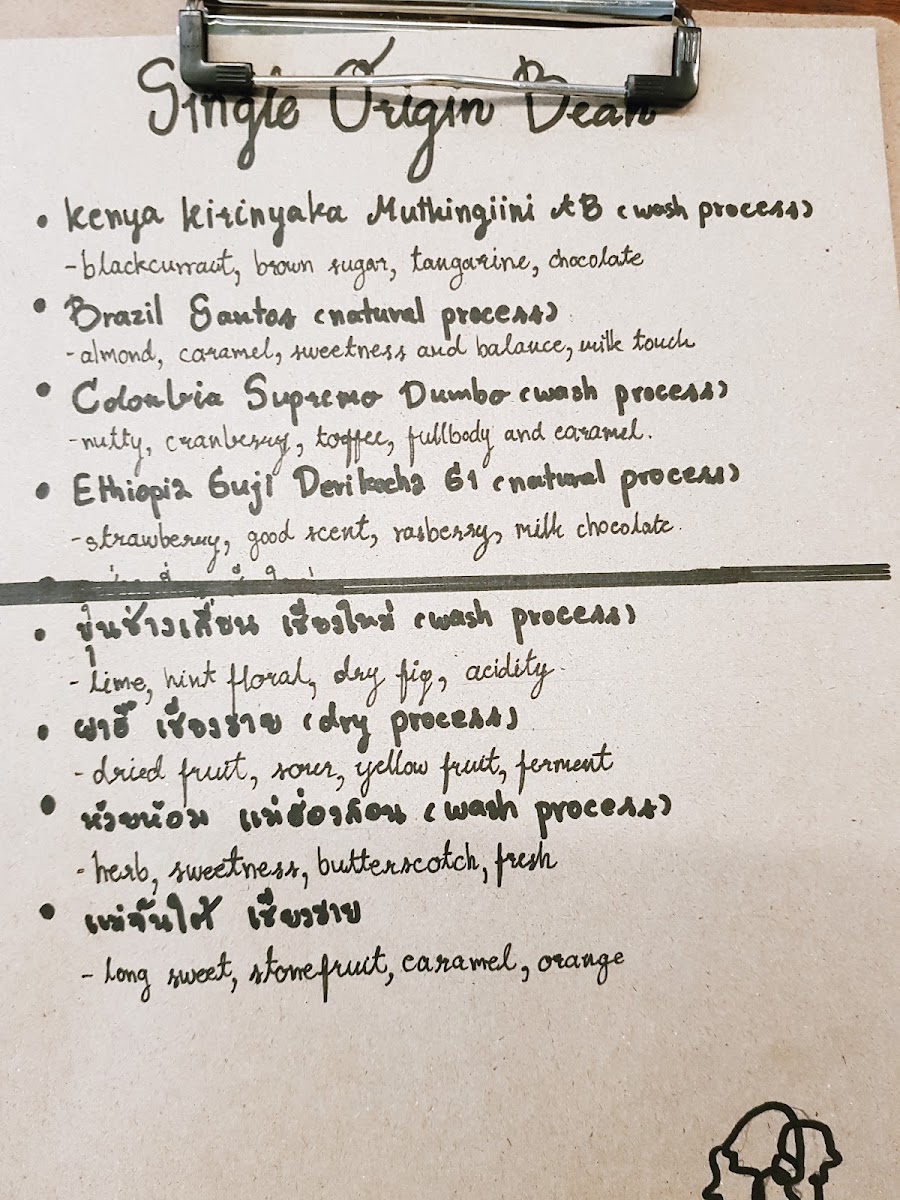 Single Origin Bean
• Kenya Kirinyaka Muthingiini AB (wash process)
- blackcurraut, brown sugar, tangarine, chocolate
• Brazil Santos (natural process)
- almond, caramel, sweetness and balance, milk touch
• Colombia Supremo Dumbo (wash process)
- nutty, cranberry, toffee, fullbody and caramel.
• Ethiopia Guji Derikocha G1 (natural process)
- strawberry, good scent, rasberry, milk chocolate.
• ขุนช่างเคี่ยน เชียงใหม่ (wash process)
- Lime, hint floral, dry fig, acidity.
• ผาฮี้ เชียงราย (dry process)
- dried fruit, sour, yellow fruit, ferment
• ห้วยห้อม แม่ฮ่องสอน (wash process)
- herb, sweetness, butterscotch, fresh
• แม่จันใต้ เชียงราย
- Long sweet, stonefruit, caramel, orange